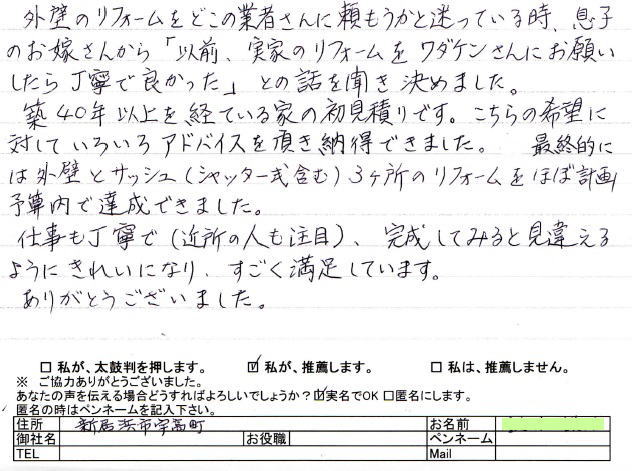 外壁のリフォームをどこの業者さんに頼もうかと迷っている時、息子
のお嫁さんから「以前、実家のリフォームをワダケンさんにお願い
したら丁寧で良かった」との話を聞き決めました。
築40年以上を経ている家の初見積りです。こちらの希望に
対していろいろアドバイスを頂き納得できました。 最終的に
は外壁とサッシュ(シャッター式含む)3ヶ所のリフォームをほぼ計画
予算内で達成できました。
仕事も丁寧で(近所の人も注目)、完成してみると見違える
ようにきれいになり、すごく満足しています。
ありがとうございました。
□ 私が、太鼓判を押します。 ☑ 私が、推薦します。 □ 私は、推薦しません。
※ ご協力ありがとうございました。
あなたの声を伝える場合どうすればよろしいでしょうか? ☑実名でOK □匿名にします。
匿名の時はペンネームを記入下さい。
住所 新居浜市宇高町 お名前
御社名 お役職 ペンネーム
TEL Mail